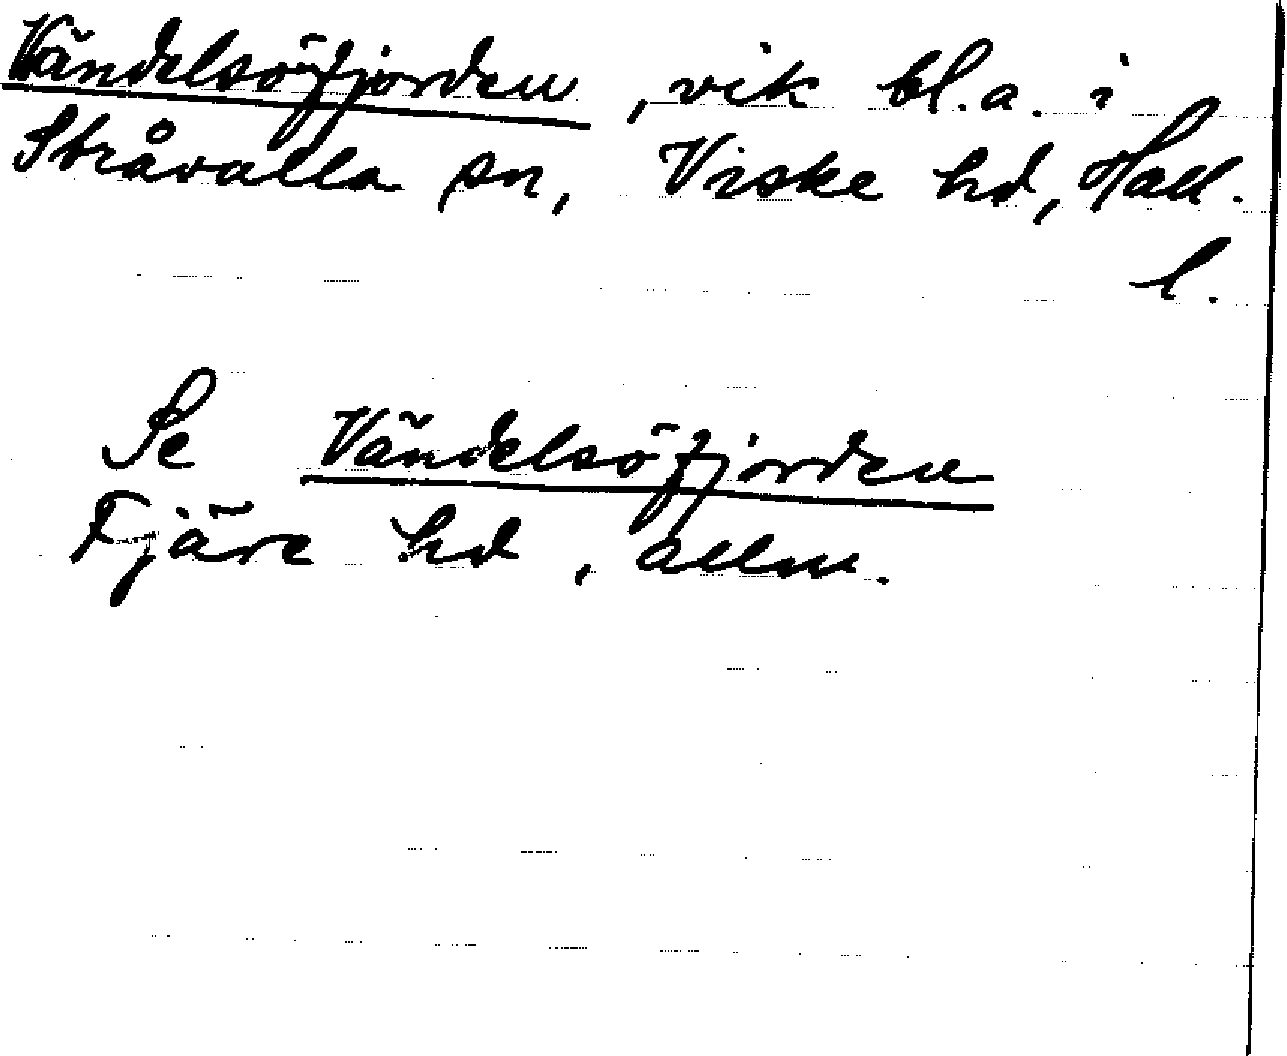 Vändelsöfjorden, vik bl.a. i
Stråvalla sn, Viske hd, Hall.
l.
Se Vändelsöfjorden
Fjäre hd, allm.